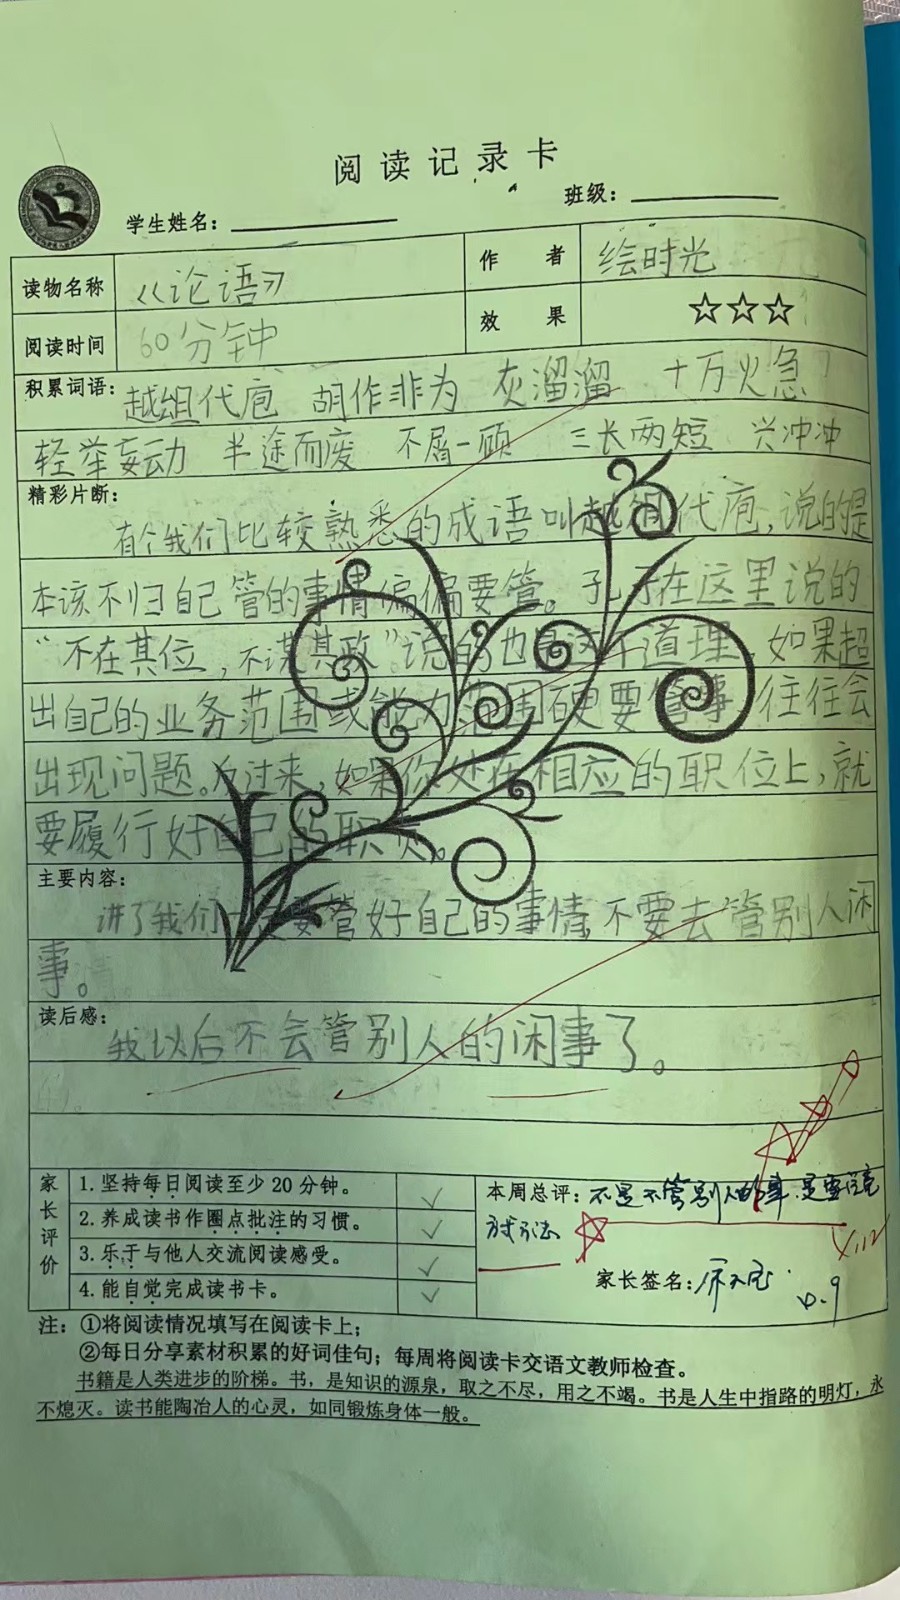 阅读记录卡
学生姓名：
班级：
读物名称 《论语》 作者 绘时光
阅读时间 60分钟 效果 ☆☆☆
积累词语： 越组代庖 胡作非为 灰溜溜 十万火急
轻举妄动 半途而废 不屑一顾 三长两短 兴冲冲
精彩片断：
有个我们比较熟悉的成语叫越组代庖，说的是
本该不归自己管的事情偏偏要管。孔子在这里说的
“不在其位，不谋其政”说的也是这个道理，如果超
出自己的业务范围或能力范围硬要管事，往往会
出现问题。反过来，如果你处在相应的职位上，就
要履行好自己的职责。
主要内容：
讲了我们一定要管好自己的事情，不要去管别人闲
事。
读后感：
我以后不会管别人的闲事了。
家长评价
1.坚持每日阅读至少20分钟。 ✓
2.养成读书作圈点批注的习惯。 ✓
3.乐于与他人交流阅读感受。 ✓
4.能自觉完成读书卡。 ✓
本周总评：不是不管别人的事，是要注意
方式方法
家长签名：
注：①将阅读情况填写在阅读卡上；
②每日分享素材积累的好词佳句；每周将阅读卡交语文教师检查。
书籍是人类进步的阶梯。书，是知识的源泉，取之不尽，用之不竭。书是人生中指路的明灯，永
不熄灭。读书能陶冶人的心灵，如同锻炼身体一般。